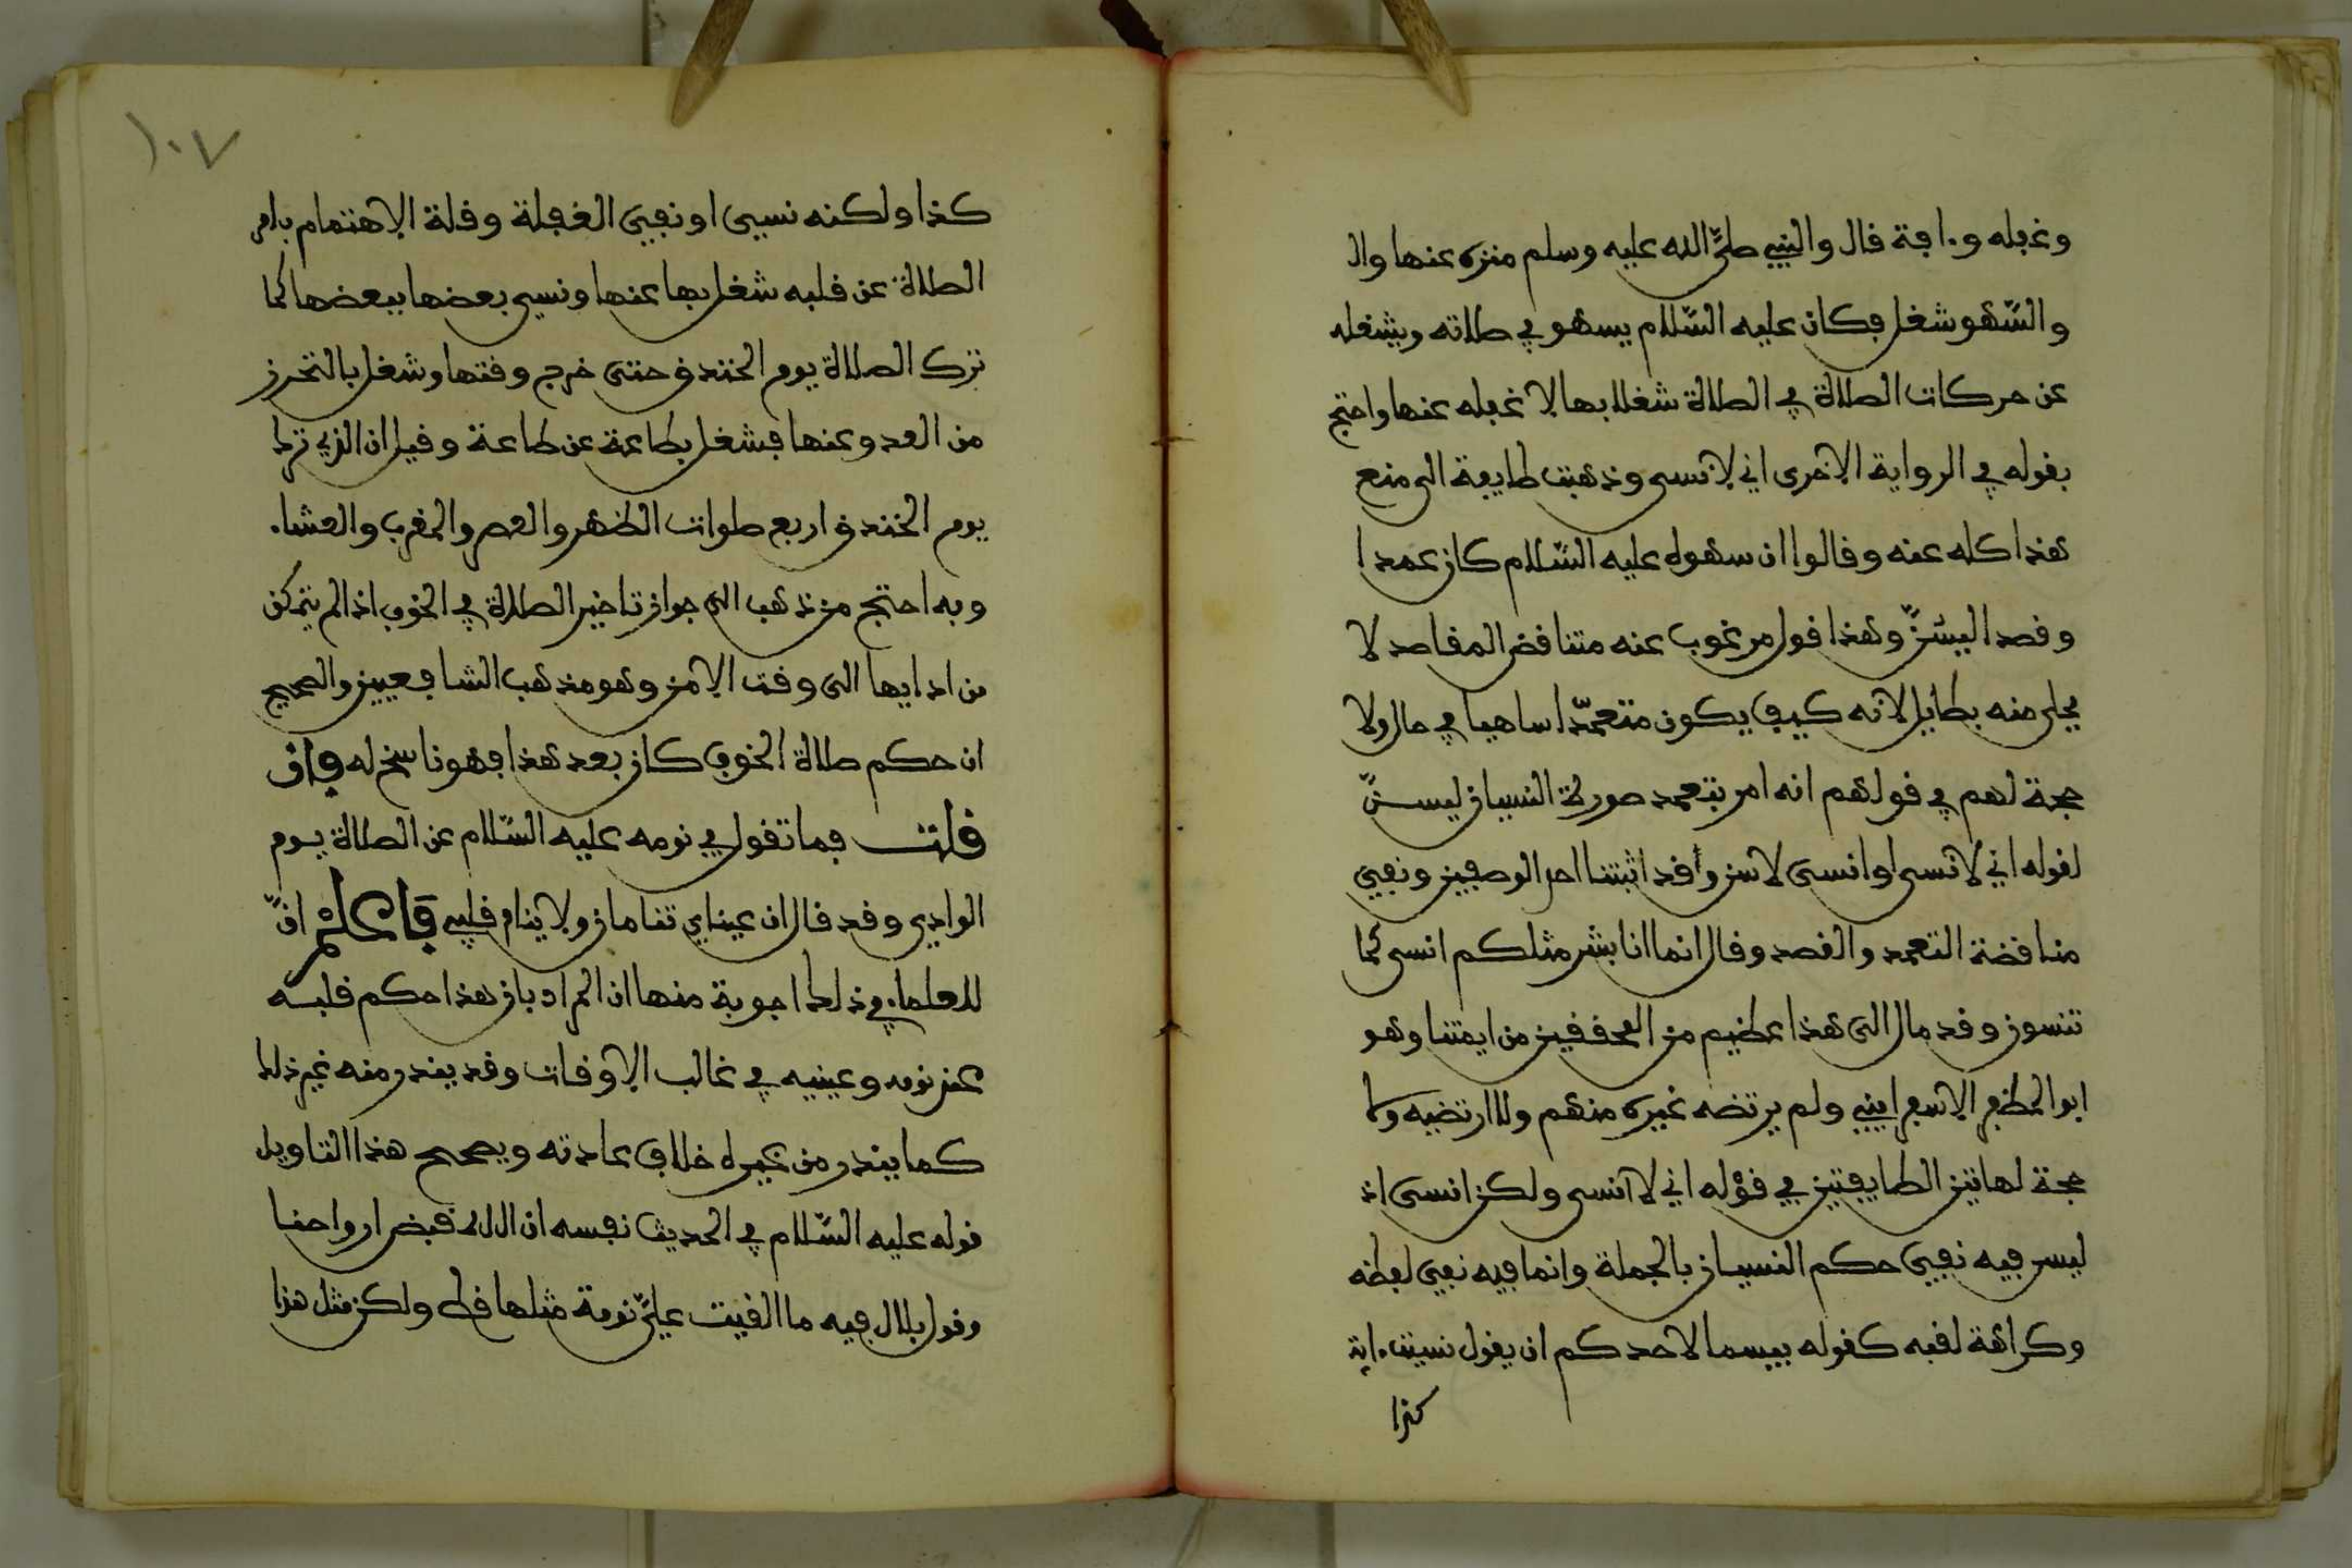 وغفله وءافة قال والنبي صلى الله عليه وسلم منزه عنها وال
والسّهو شغل فكان عليه السّلام يسهو في صلاته ويشغله
عن حركات الصلاة في الصلاة شغلا بها لا غفله عنها واحتج
بقوله في الرواية الاخرى اني لا انسى وذهبت طايفة الى منع
هذا كله عنه وقالوا ان سهوه عليه السّلام كان عمدا
وقصدا ليسُنَّ وهذا قول مرغوب عنه متناقض المقاصد لا
يحلى منه بطايل لانه كيف يكون متعمّدا ساهيا في حال ولا
حجة لهم في قولهم انه امر بتعمد صورة النسيان ليسنّ
لقوله اني لانسى او انسى لاسن وقد اثبتنا احد الوصفين ونفي
مناقضة التعمد والقصد وقال انما انا بشر مثلكم انسى كما
تنسون وقد مال الى هذا عظيم من المحققين من ايمتنا وهو
ابو المظفر الاسفرايني ولم يرتضه غيره منهم ولا ارتضيه ولا
حجة لهاتين الطايفتين في قوله اني لا انسى ولكن انسى اذ
ليس فيه نفي حكم النسيان بالجملة وانما فيه نفي لفظه
وكراهة لقبه كقوله بيسما لاحدكم ان يقول نسيت ءاية
كذا
١٠٧
كذا ولكنه نسي او نفي الغفلة وقلة الاهتمام بامر
الصلاة عن قلبه شغل بها عنها ونسي بعضها ببعضها كما
ترك الصلاة يوم الخندق حتى خرج وقتها وشغل بالتحرز
من العدو عنها فشغل بطاعة عن طاعة وقيل ان الذي ترك
يوم الخندق اربع صلوات الظهر والعصر والمغرب والعشاء
وبه احتج من ذهب الى جواز تاخير الصلاة في الخوف اذا لم يتمكن
من ادايها الى وقت الامن وهو مذهب الشافعيين والصحيح
ان حكم صلاة الخوف كان بعد هذا فهو ناسخ له فإن
قلت فما تقول في نومه عليه السّلام عن الصلاة يوم
الوادي وقد قال ان عيناي تنامان ولا ينام قلبي فاعلم انّ
للعلماء في ذلك اجوبة منها ان المراد بان هذا حكم قلبه
عند نومه وعينيه في غالب الاوقات وقد يندر منه غير ذلك
كما يندر من غيره خلاف عادته ويصحح هذا التاويل
قوله عليه السّلام في الحديث نفسه ان الله قبض ارواحنا
وقول بلال فيه ما القيت عليّ نومة مثلها قط ولكن مثل هذا